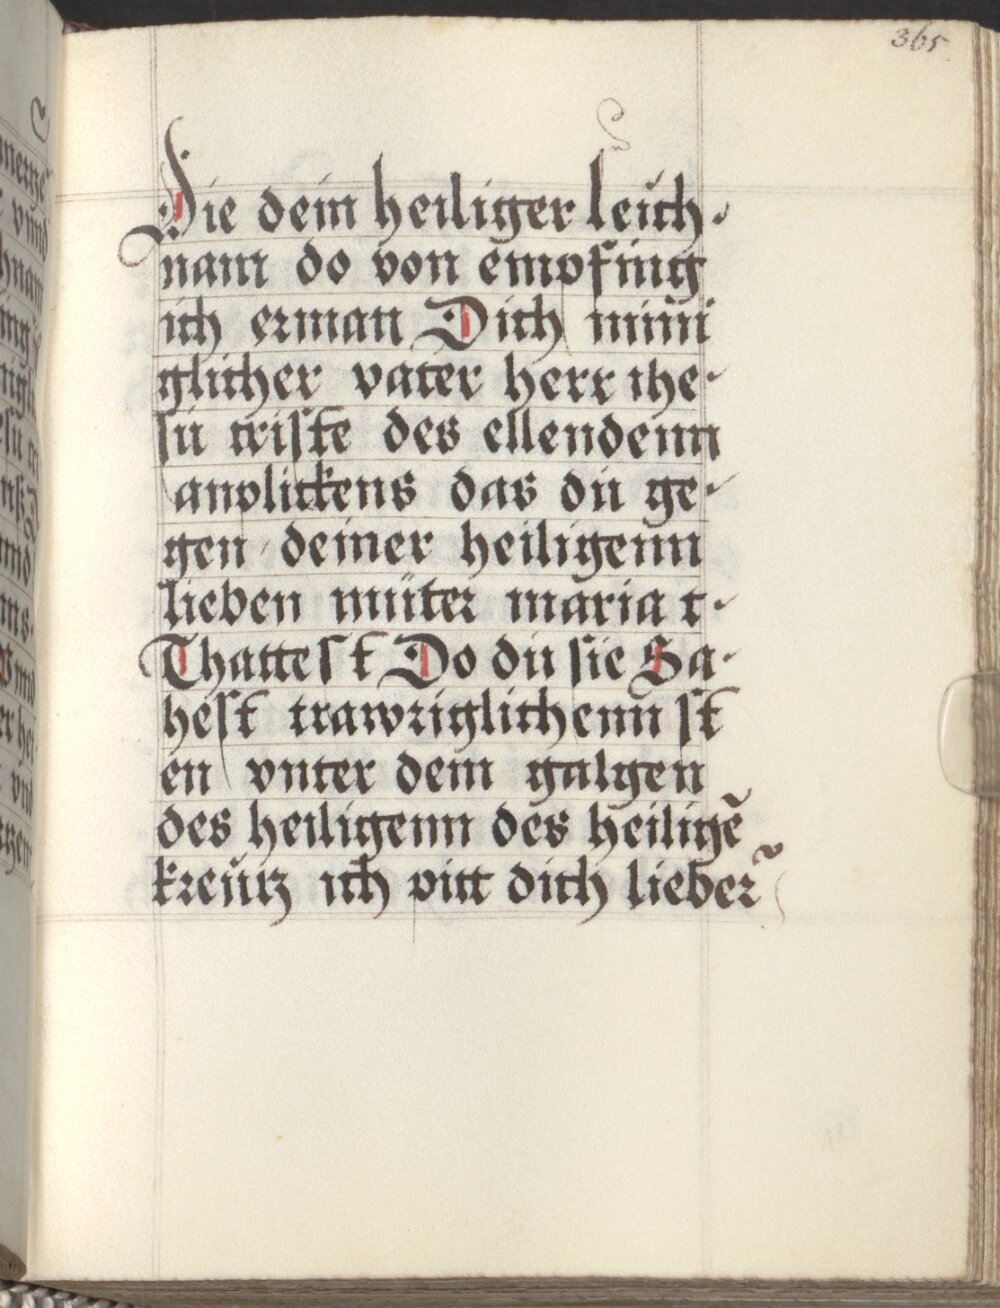 365
Die dein heiliger leich-
nam do von empfing
ich erman Dich minni
glicher vater herr ihe-
su criste des ellendenn
anplickens das du ge-
gen deiner heiligenn
lieben muter maria t-
Thattest Do du sie Sa-
hest trawriglichenn st
en vnter dem galgen
des heiligenn des heiligē
kreutz ich pitt dich lieber̃